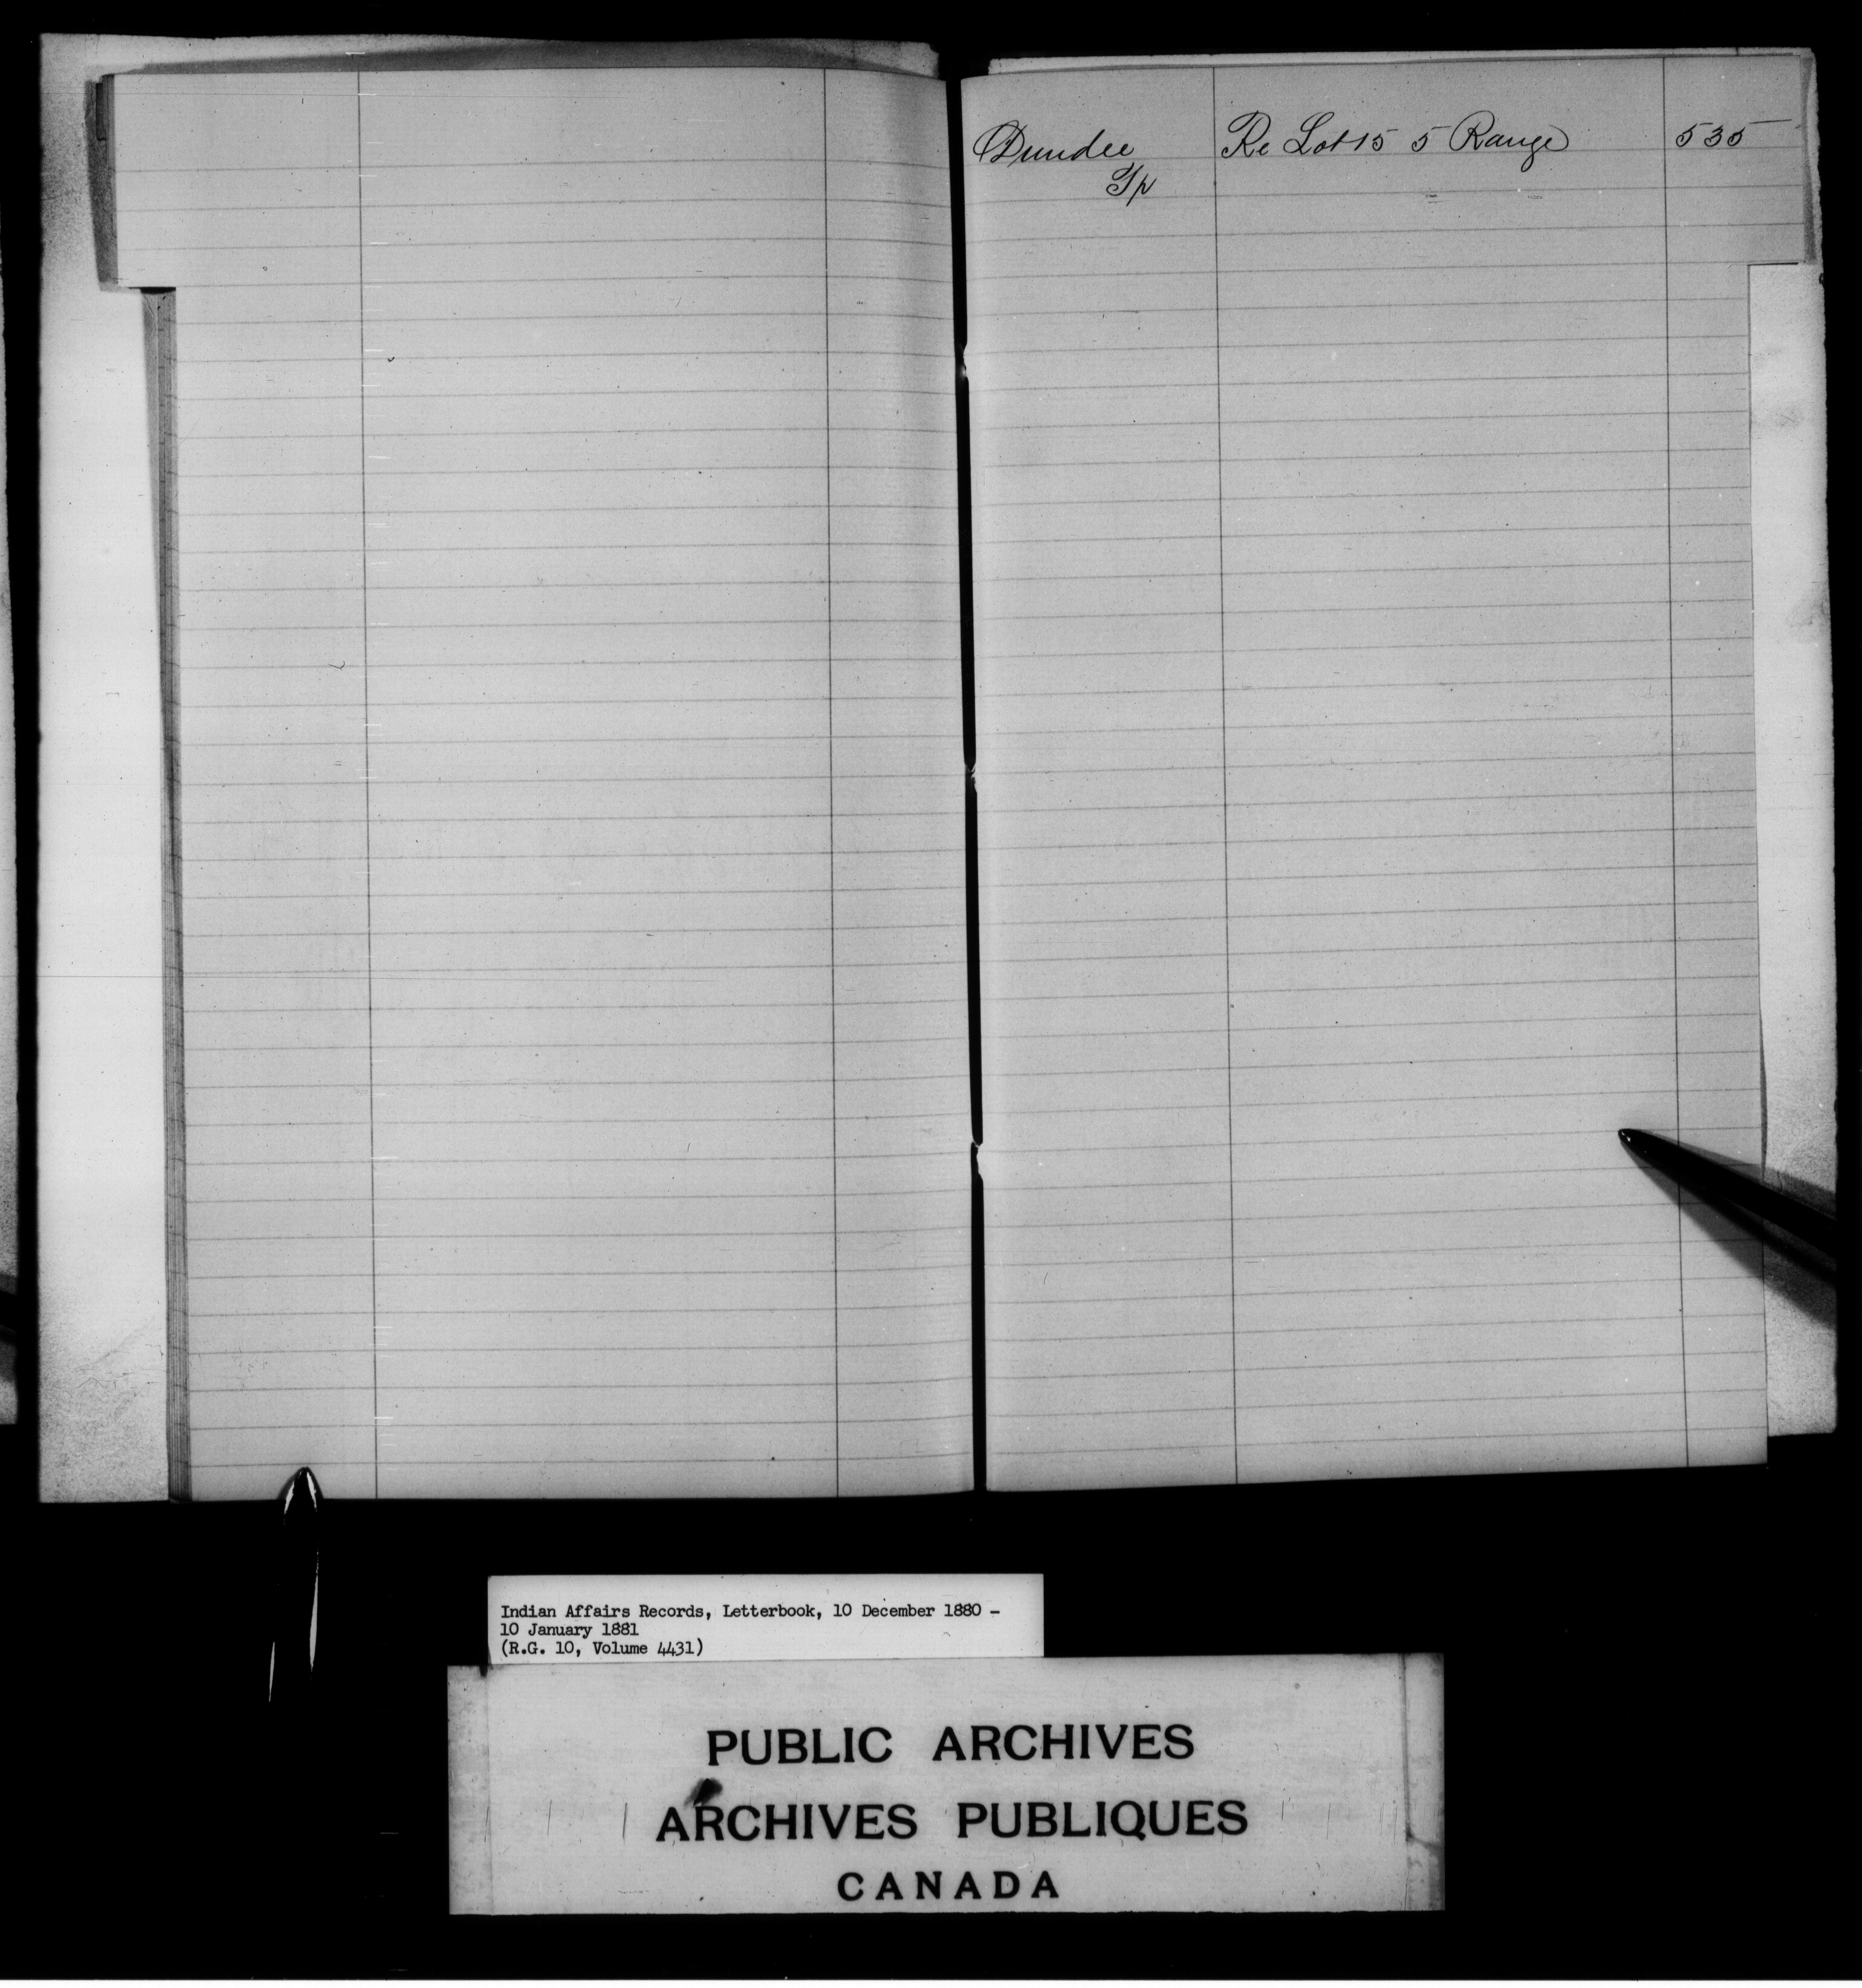 Dundee Re Lot 15 5 Range 535
Tp
Indian Affairs Records, Letterbook, 10 December 1880 –
10 January 1881
(R.G. 10, Volume 4431)
PUBLIC ARCHIVES
ARCHIVES PUBLIQUES
CANADA